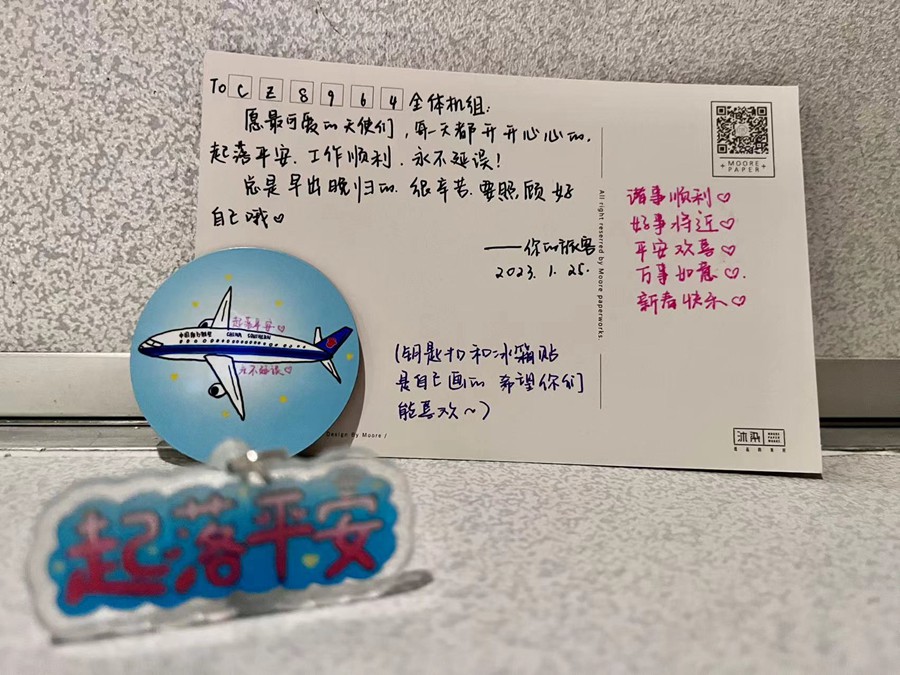 To CZ8964 全体机组:
愿最可爱的天使们,每一天都开开心心的,
起落平安、工作顺利、永不延误!
总是早出晚归的、很辛苦、要照顾好
自己哦♡
——你的旅客
2023.1.25.
(钥匙扣和冰箱贴
是自己画的 希望你们
能喜欢~)
MOORE
PAPER
诸事顺利♡
好事将近♡
平安欢喜♡
万事如意♡.
新春快乐♡
All right reserred by Moore paperworks.
沐染
Design By Moore /
起落平安♡
中国南方航空 CHINA SOUTHERN
永不延误♡
起落平安